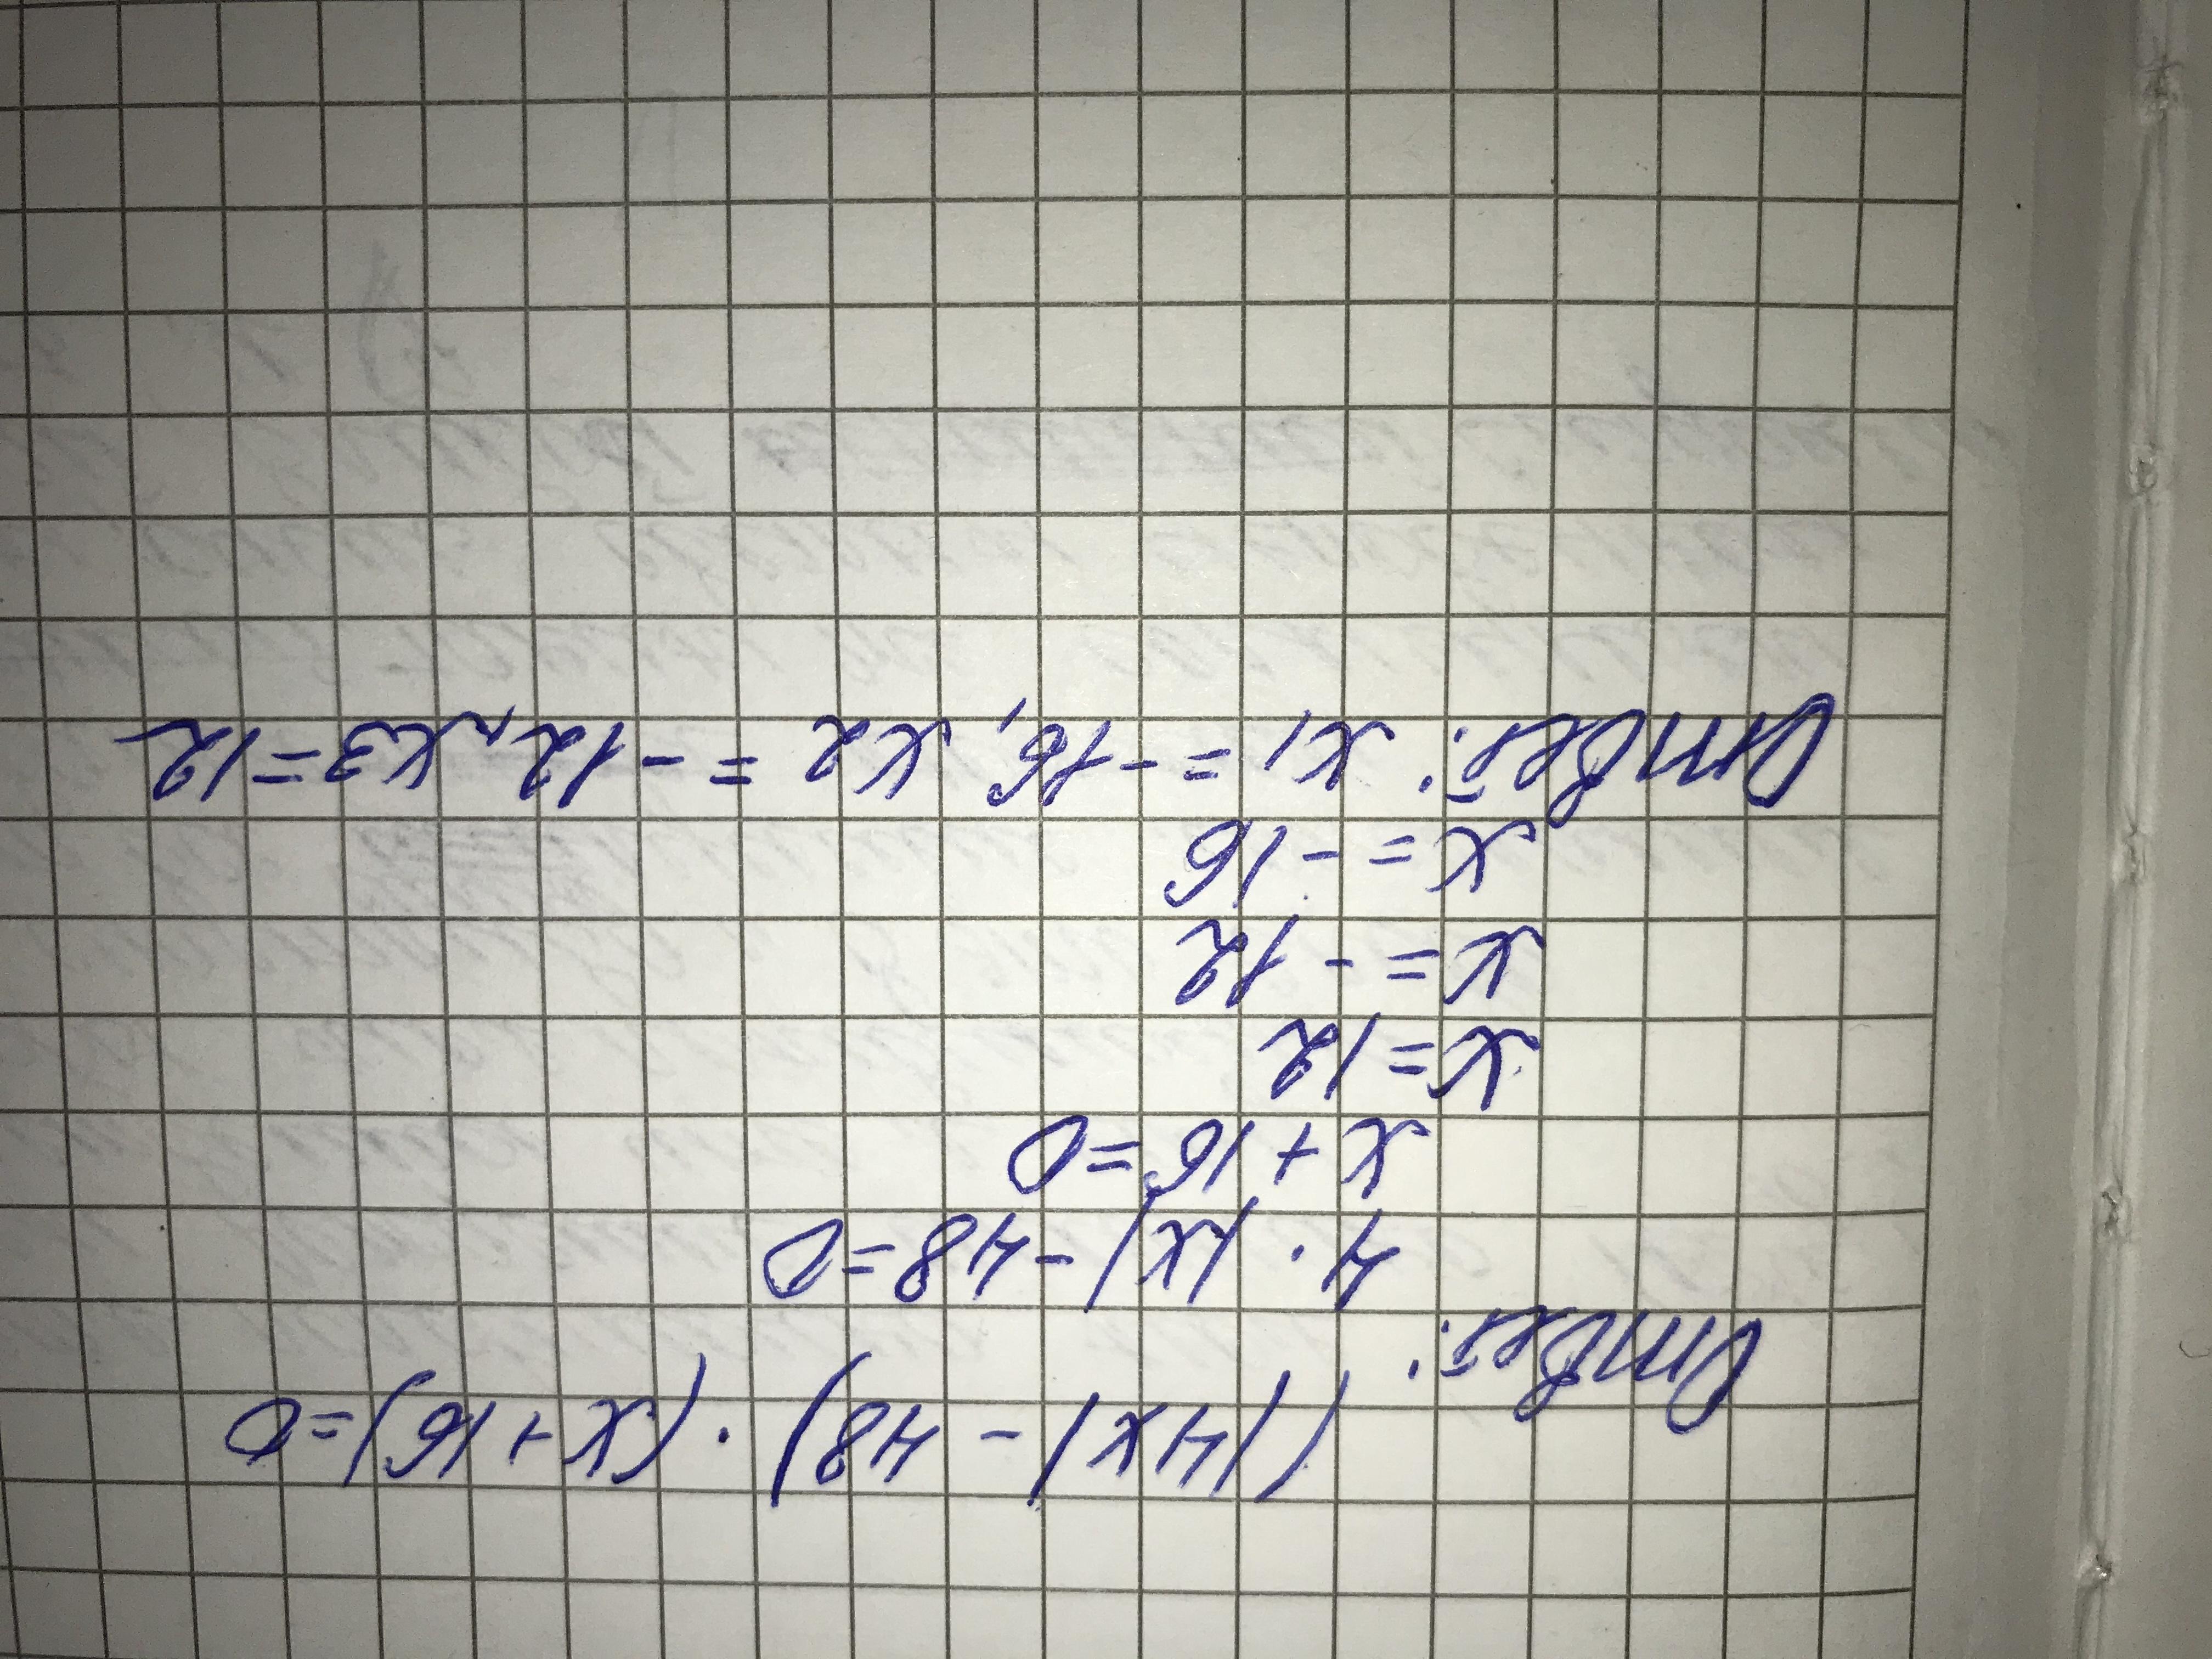 (|4x| - 48) · (x + 16) = 0
Ответ:
4 · |x| - 48 = 0
x + 16 = 0
x = 12
x = - 12
x = - 16
Ответ: x1 = - 16, x2 = - 12, x3 = 12